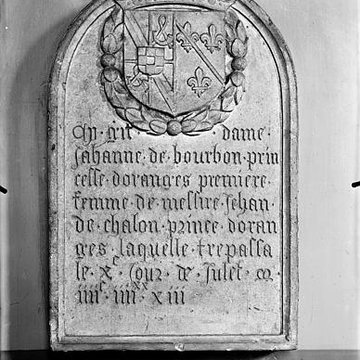 Cy · git · dame ·
Jahanne · de · bourbon · prin
cesse · doranges · premiere ·
femme · de · messire · Jehan ·
de · chalon · prince · doran
ges · laquelle · trepassa ·
le · xᵉ · Jour · de · Julet · m ·
iiiiᶜ · iiiiˣˣ xiii